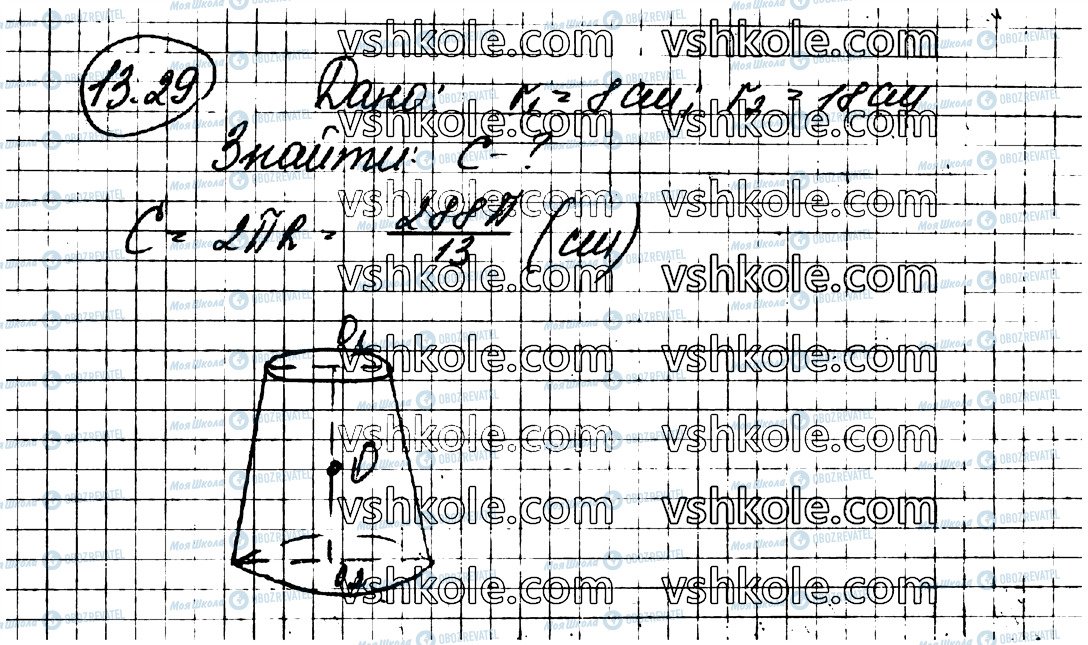 13.29
Дано: r₁ = 8 см; r₂ = 18 см
Знайти: C - ?
C = 2πR = 288π/13 (см)
O₁
O
vshkole.com vshkole.com
vshkole.com vshkole.com
vshkole.com vshkole.com
vshkole.com vshkole.com
vshkole.com vshkole.com
vshkole.com vshkole.com
vshkole.com vshkole.com
vshkole.com vshkole.com
Моя Школа OBOZREVATEL